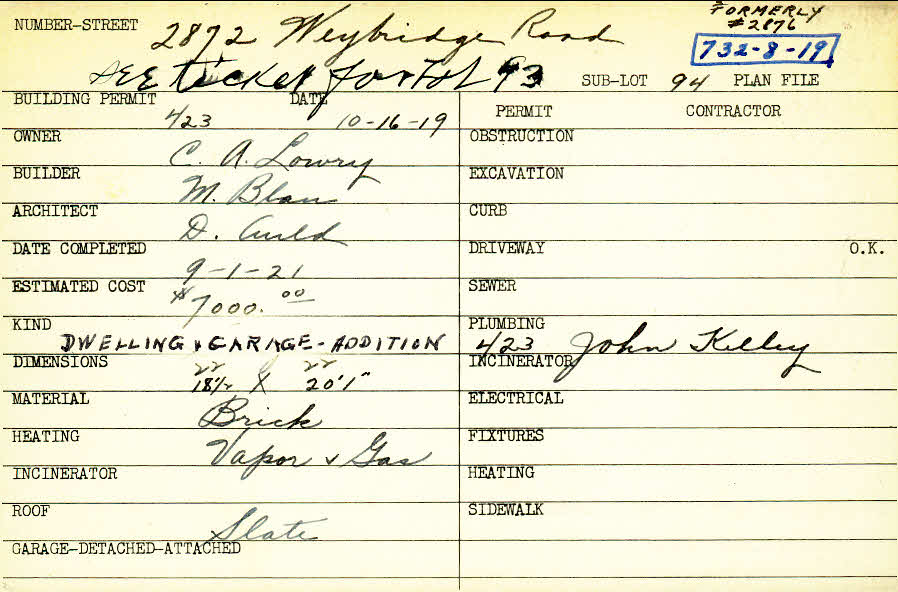 FORMERLY
#2876
NUMBER-STREET 2872 Weybridge Road
732-8-19
SEE ticket for S/L 93 SUB-LOT 94 PLAN FILE
BUILDING PERMIT 423 DATE 10-16-19
PERMIT CONTRACTOR
OWNER C. A. Lowry
OBSTRUCTION
BUILDER M. Blau
EXCAVATION
ARCHITECT D. Auld
CURB
DATE COMPLETED 9-1-21
DRIVEWAY O.K.
ESTIMATED COST $7000.00
SEWER
KIND DWELLING & GARAGE-ADDITION
PLUMBING 423 John Kelley
DIMENSIONS 22 22
18½ X 20'1"
INCINERATOR
MATERIAL Brick
ELECTRICAL
HEATING Vapor & Gas
FIXTURES
INCINERATOR
HEATING
ROOF Slate
SIDEWALK
GARAGE-DETACHED-ATTACHED